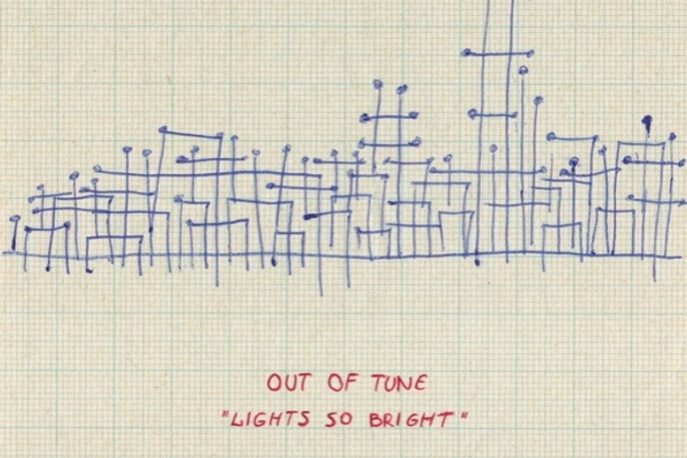 OUT OF TUNE
"LIGHTS SO BRIGHT"